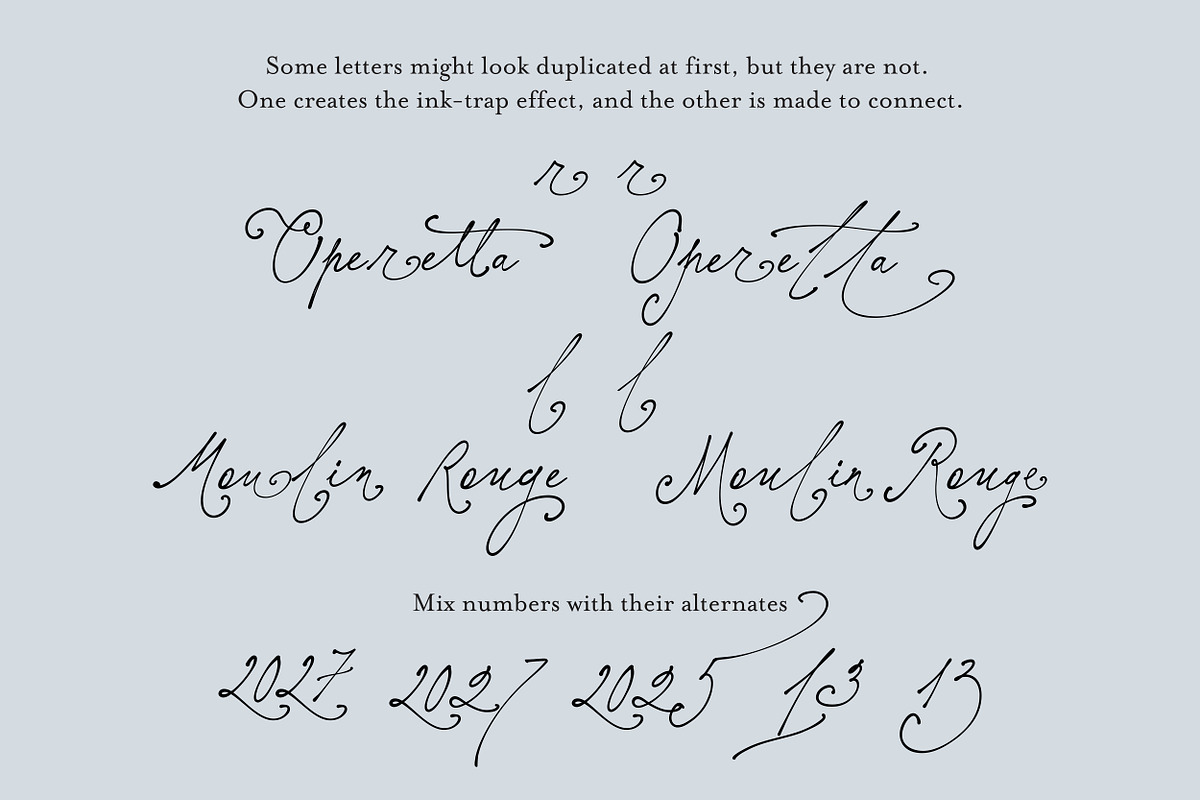 Some letters might look duplicated at first, but they are not.
One creates the ink-trap effect, and the other is made to connect.
r r
Operetta Operetta
l l
Moulin Rouge Moulin Rouge
Mix numbers with their alternates
2027 2027 2025 13 13